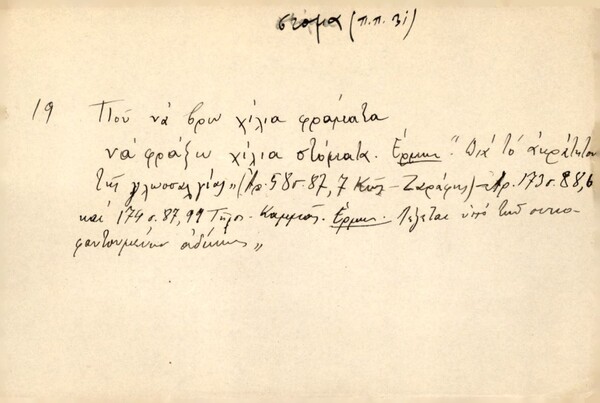 στόμα (π.π. 31)
19 Ποῦ νά βρω χίλια φράματα
νά φράξω χίλια στόματα. Ἑρμην. "Διά τό ἀκράτητον
τῆς γλωσσαλγίας„ (Ἀρ. 58 σ. 87, 7 Κῶς - Ζαράφτης) - Ἀρ. 173 σ. 88, 6
καί 174 σ. 87, 99 Τῆλος - Καμμάς. Ἑρμην. Λέγεται ὑπό τῶν συκο-
φαντουμένων ἀδίκως„